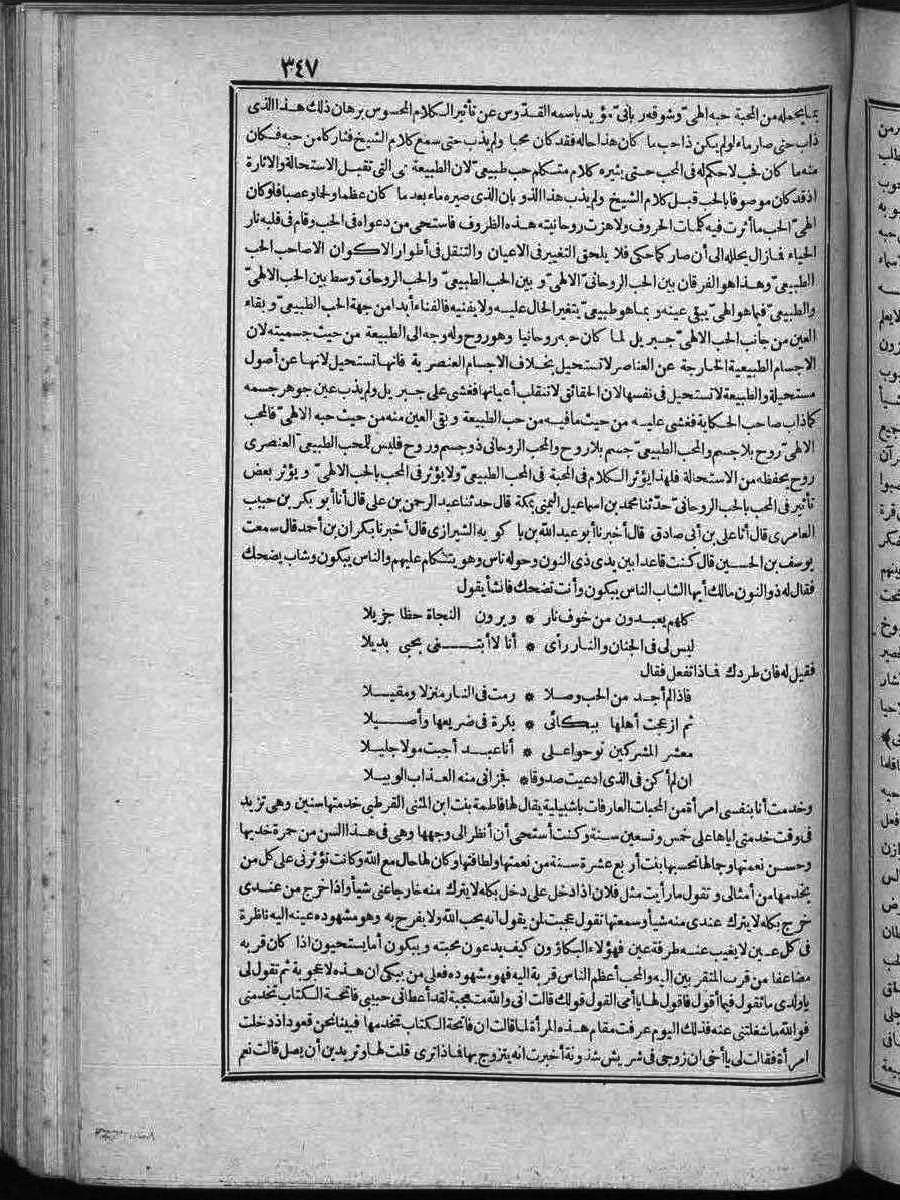 ٣٤٧
بما يحمله من المحبة حبه الهىّ وشوقه ربانىّ مؤيد باسمه القدّوس عن تأثير الكلام المحسوس برهان ذلك هذا الذى
ذاب حتى صار ماء لولم يكن ذا حب ما كان هذا حاله فقد كان محبا ولم يذب حتى سمع كلام الشيخ فثار كامن حبه فكان
منه ما كان فحب لا حكم له فى المحب حتى يثيره كلام متكلم حب طبيعىّ لان الطبيعة هى التى تقبل الاستحالة والاثارة
اذ قد كان موصوفا بالحب قبل كلام الشيخ ولم يذب هذا الذوبان الذى صيره ماء بعد ما كان عظما ولحما وعصبا فلو كان
الهىّ الحب ما أثرت فيه كلمات الحروف ولا هزت روحانيته هذه الظروف فاستحى من دعواه فى الحب وقام فى قلبه نار
الحياء فما زال يحلله الى أن صار كما حكى فلا يلحق التغيير فى الاعيان والتنقل فى أطوار الاكوان الا صاحب الحب
الطبيعىّ وهذا هو الفرقان بين الحب الروحانىّ الالهىّ وبين الحب الطبيعىّ والحب الروحانىّ وسط بين الحب الالهىّ
والطبيعىّ فبما هو الهىّ يبقى عينه وبما هو طبيعىّ يتغير الحال عليه ولا يفنيه فالفناء أبدا من جهة الحب الطبيعىّ وبقاء
العين من جانب الحب الالهىّ جبريل لما كان حبه روحانيا وهو روح وله وجه الى الطبيعة من حيث جسميته لان
الاجسام الطبيعية الخارجة عن العناصر لا تستحيل بخلاف الاجسام العنصرية فانها تستحيل لانها عن أصول
مستحيلة والطبيعة لا تستحيل فى نفسها لان الحقائق لا تنقلب أعيانها فغشى على جبريل ولم يذب عين جوهر جسمه
كما ذاب صاحب الحكاية فغشى عليه من حيث ما فيه من حب الطبيعة وبقى العين منه من حيث حبه الالهىّ فالمحب
الالهىّ روح بلا جسم والمحب الطبيعىّ جسم بلا روح والمحب الروحانى ذو جسم وروح فليس للمحب الطبيعىّ العنصرى
روح يحفظه من الاستحالة فلهذا يؤثر الكلام فى المحبة فى المحب الطبيعىّ ولا يؤثر فى المحب بالحب الالهىّ ويؤثر بعض
تأثير فى المحب بالحب الروحانىّ حدّثنا محمد بن اسماعيل اليمنى بمكة قال حدثنا عبد الرحمن بن على قال أنا أبو بكر بن حبيب
العامرى قال أنا على بن أبى صادق قال أخبرنا أبو عبد الله بن باكويه الشيرازى قال أخبرنا بكران بن أحمد قال سمعت
يوسف بن الحسين قال كنت قاعدا بين يدى ذى النون وحوله ناس وهو يتكلم عليهم والناس يبكون وشاب يضحك
فقال له ذو النون مالك أيها الشاب الناس يبكون وأنت تضحك فانشأ يقول
كلهم يعبدون من خوف نار * ويرون النجاة حظا جزيلا
ليس لى فى الجنان والنار رأى * أنا لا أبتغى بحبى بديلا
فقيل له فان طردك فماذا تفعل فقال
فاذا لم أجد من الحب وصلا * رمت فى النار منزلا ومقيلا
ثم ازعجت أهلها ببكائى * بكرة فى ضريعها وأصيلا
معشر المشركين نوحوا على * أنا عبد أحببت مولا جليلا
ان لم أكن فى الذى ادعيت صدوقا * فجزانى منه العذاب الوبيلا
وخدمت أنا بنفسى امرأة من المحبات العارفات باشبيلية يقال لها فاطمة بنت ابن المثنى القرطبى خدمتها سنين وهى تزيد
فى وقت خدمتى اياها على خمس وتسعين سنة وكنت أستحى أن أنظر الى وجهها وهى فى هذا السن من حمرة خديها
وحسن نعمتها وجمالها تحسبها بنت أربع عشرة سنة من نعمتها ولطافتها وكان لها حال مع الله وكانت تؤثرنى على كل من
يخدمها من أمثالى وتقول ما رأيت مثل فلان اذا دخل على دخل بكله لا يترك منه خارجا عنى شيأ واذا خرج من عندى
خرج بكله لا يترك عندى منه شيأ وسمعتها تقول عجبت لمن يقول انه يحب الله ولا يفرح به وهو مشهوده عينه اليه ناظرة
فى كل عين لا يغيب عنه طرفة عين فهؤلاء البكاؤون كيف يدعون محبته ويبكون أما يستحيون اذا كان قربه
مضاعفا من قرب المتقربين اليه والمحب أعظم الناس قربة اليه فهو مشهوده فعلى من يبكى ان هذه لاعجوبة ثم تقول لى
يا ولدى ما تقول فيما أقول فاقول لها يا أمى القول قولك قالت انى والله متعجبة لقد أعطانى حبيبى فاتحة الكتاب تخدمنى
فوالله ما شغلتنى عنه فذلك اليوم عرفت مقام هذه المرأة لما قالت ان فاتحة الكتاب تخدمها فبينا نحن قعود اذ دخلت
امرأة فقالت لى يا أخى ان زوجى فى شريش شذونة أخبرت انه يتزوج بها فماذا ترى قلت لها وتريدين أن يصل قالت نعم